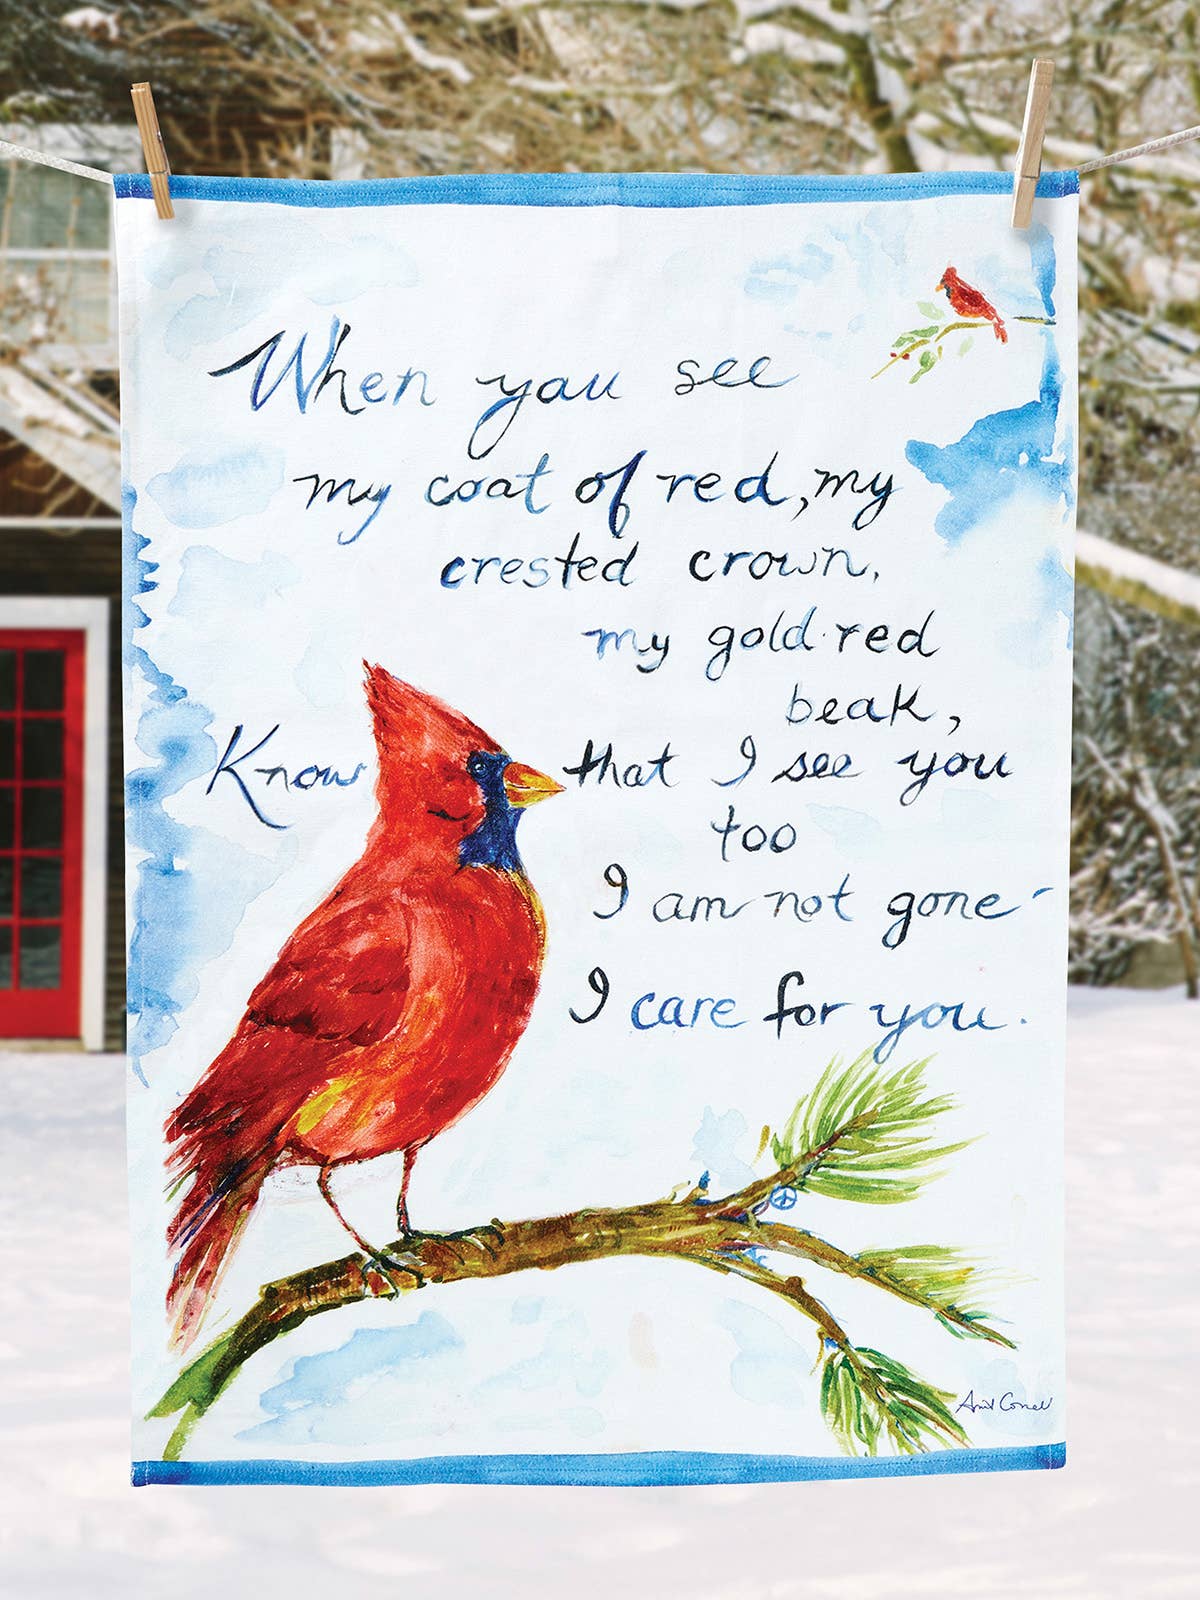 When you see
my coat of red, my
crested crown,
my gold red
beak,
Know that I see you
too
I am not gone -
I care for you.